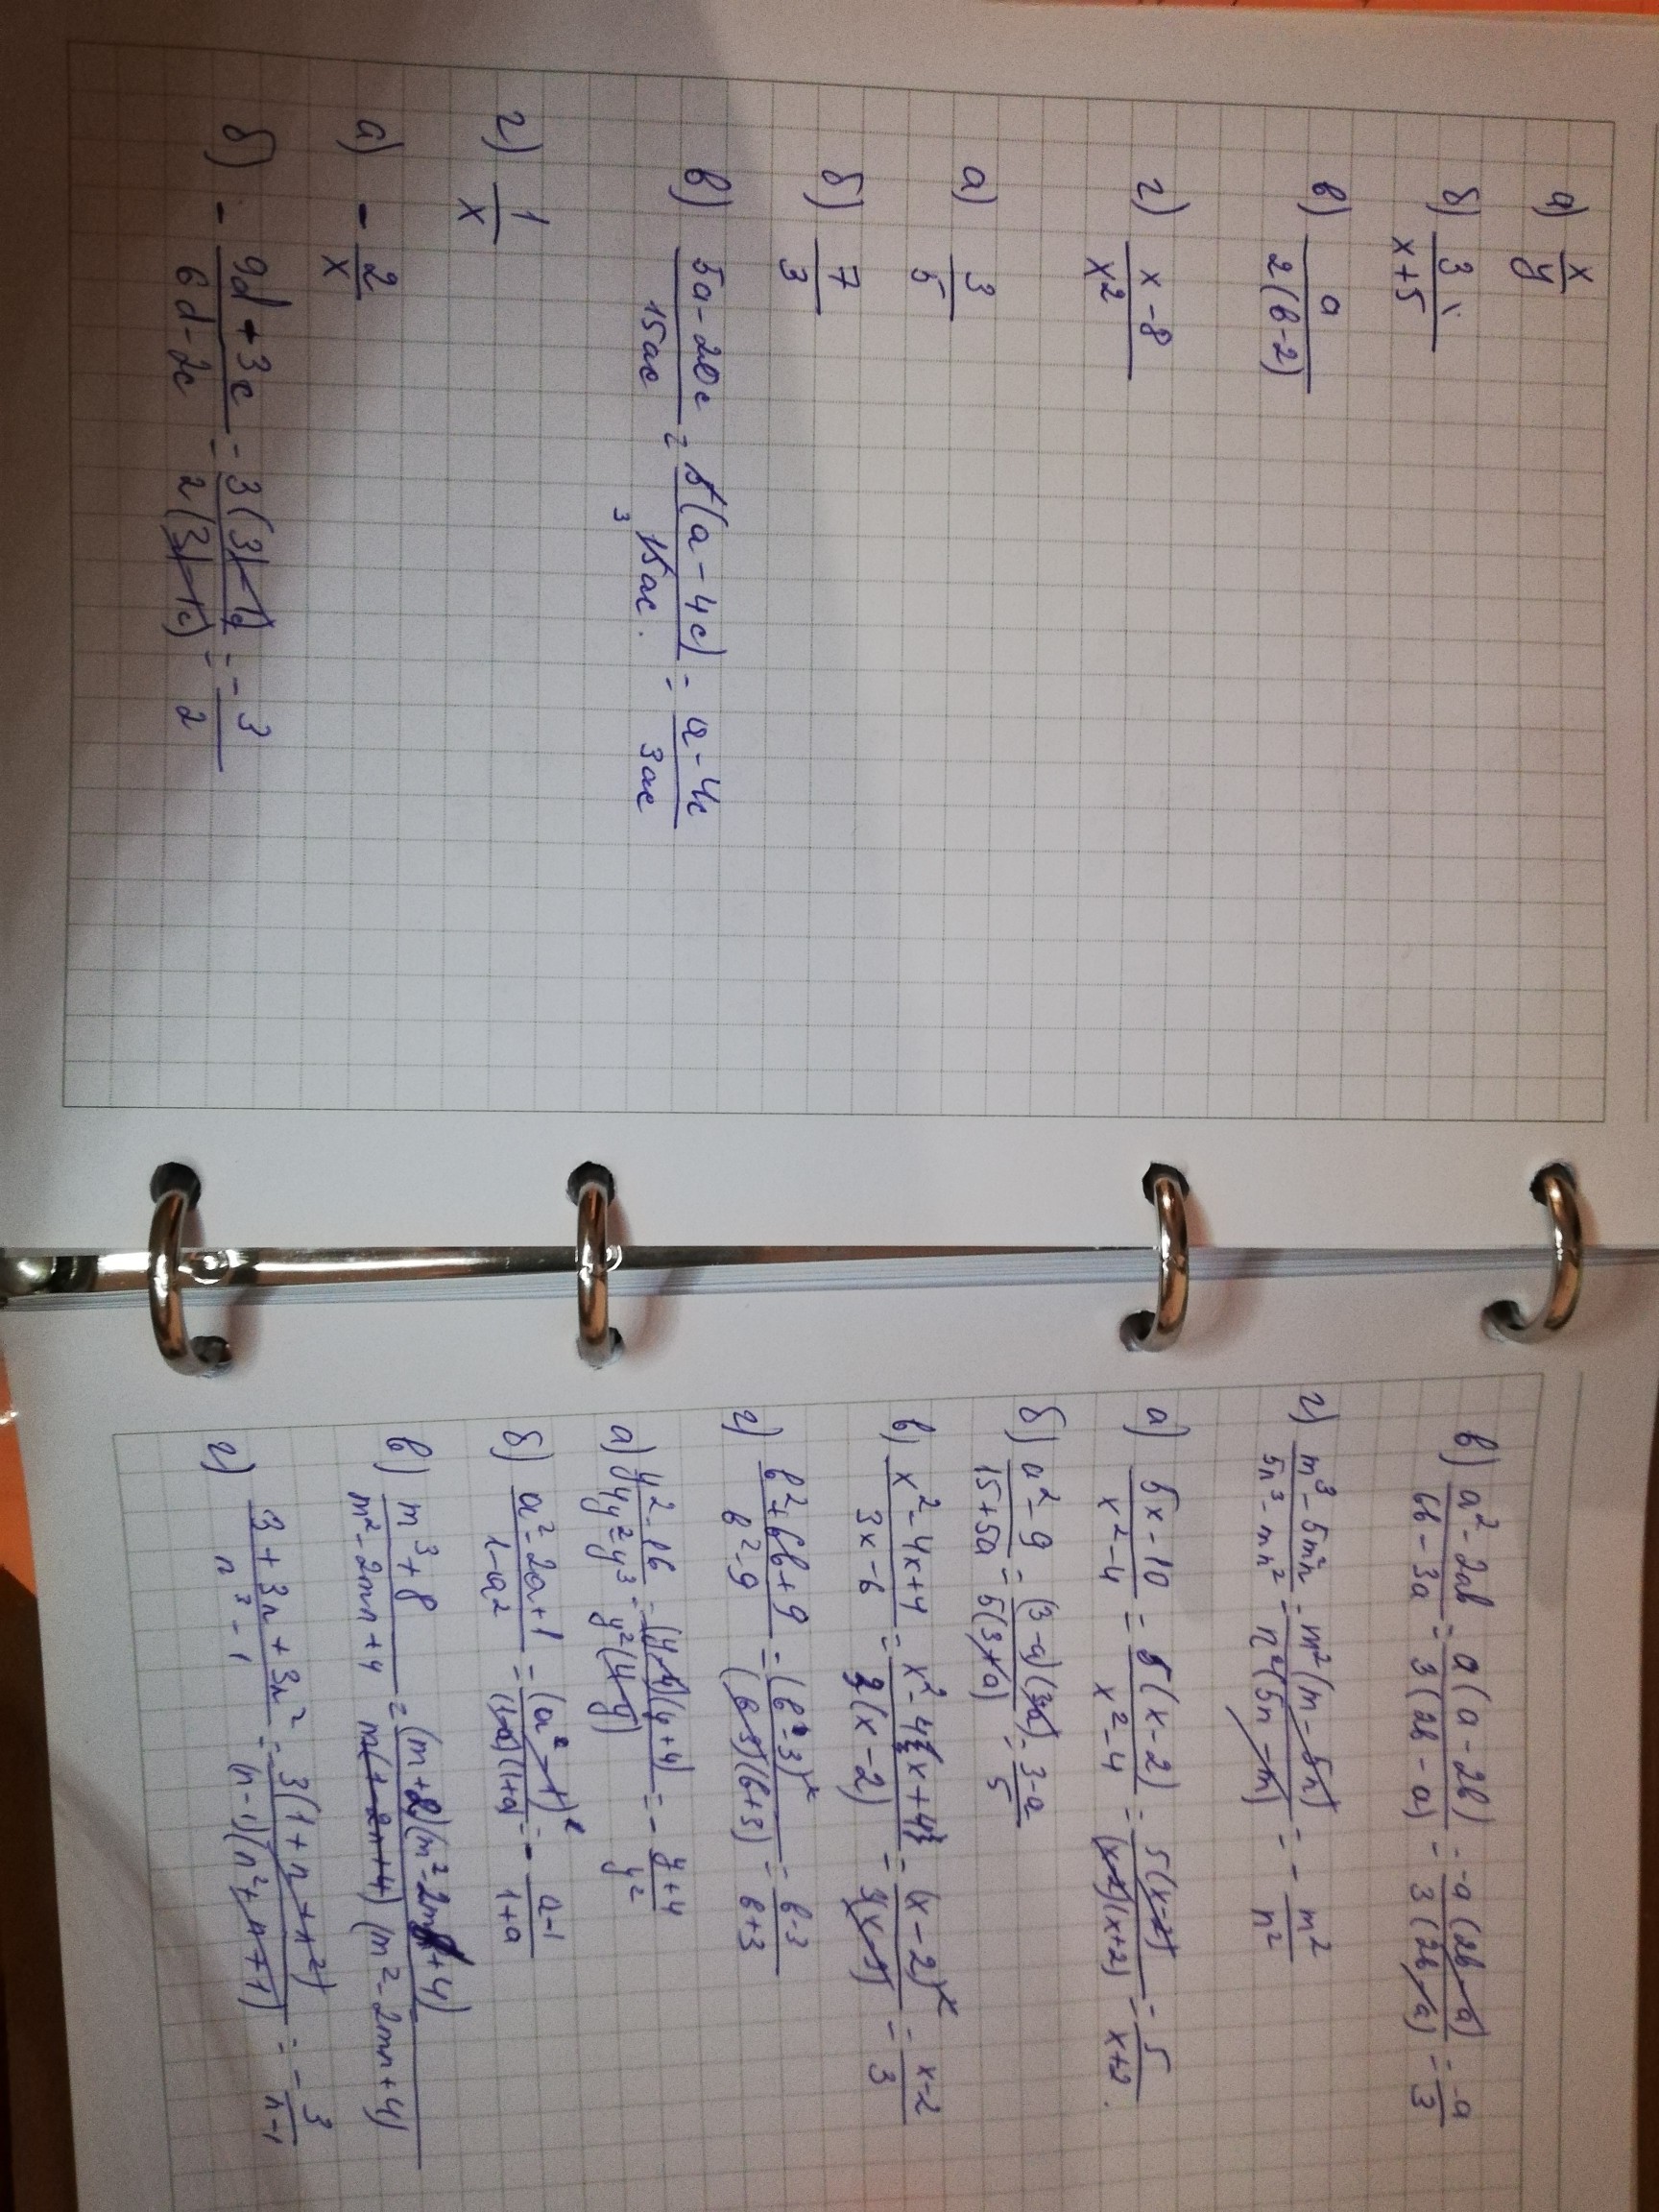 а) x/y
б) 3/(x+5)
в) a/(2(b-2))
г) (x-8)/x²
а) 3/5
б) 7/3
в) (5a-20c)/(15ac) = 5(a-4c)/(15ac) = (a-4c)/(3ac)
г) 1/x
а) -2/x
б) -(9d+3c)/(6d-2c) = 3(3d-c)/(2(3d+c)) = -3/2
в) (a²-2ab)/(6b-3a) = a(a-2b)/(3(2b-a)) = -a(2b-a)/(3(2b-a)) = -a/3
г) (m³-5m²n)/(5n³-mn²) = m²(m-5n)/(n²(5n-m)) = -m²/n²
а) (5x-10)/(x²-4) = 5(x-2)/(x²-4) = 5(x-2)/((x-2)(x+2)) = 5/(x+2)
б) (a²-9)/(15+5a) = (3-a)(3+a)/(5(3+a)) = (3-a)/5
в) (x²-4x+4)/(3x-6) = (x²-4x+4)/(3(x-2)) = (x-2)²/(3(x-2)) = (x-2)/3
г) (b²+6b+9)/(b²-9) = (b-3)²/((b-3)(b+3)) = (b-3)/(b+3)
а) (y²-16)/(4y²-y³) = (y-4)(y+4)/(y²(4-y)) = -(y+4)/y²
б) (a²-2a+1)/(1-a²) = (a-1)²/((1-a)(1+a)) = -(a-1)/(1+a)
в) (m³+8)/(m²-2mn+4) = (m+2)(m²-2m+4)/(m²-2mn+4)
г) (3+3n+3n²)/(n³-1) = 3(1+n+n²)/((n-1)(n²+n+1)) = -3/(n-1)